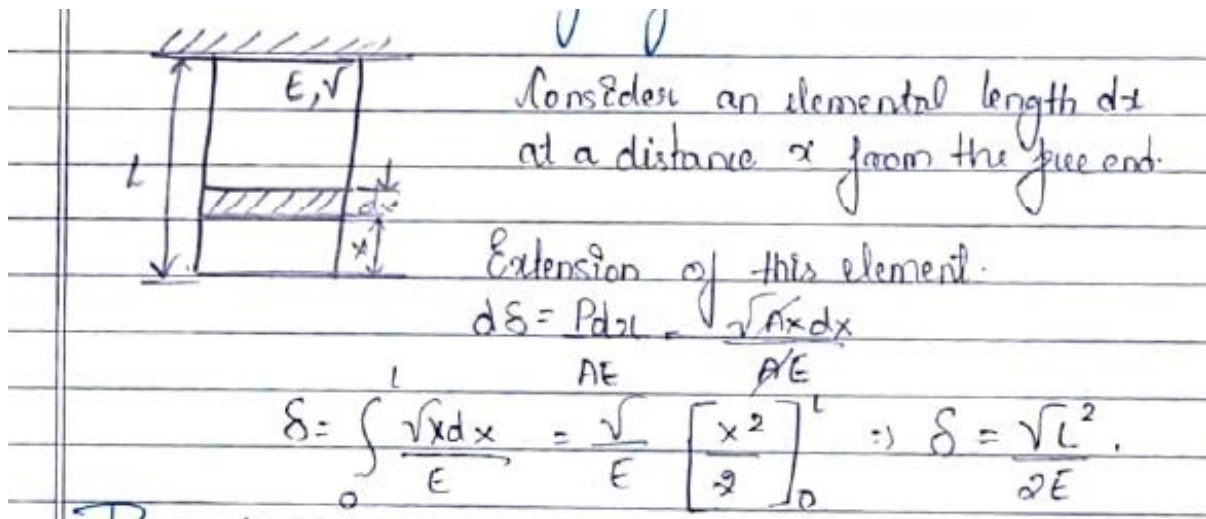 E, γ
L
dx
x
Consider an elemental length dx
at a distance x from the free end.
Extension of this element.
dδ = Pdx/AE = γAxdx/AE
δ = ∫₀ᴸ γxdx/E = γ/E [x²/2]₀ᴸ ⇒ δ = γL²/2E.